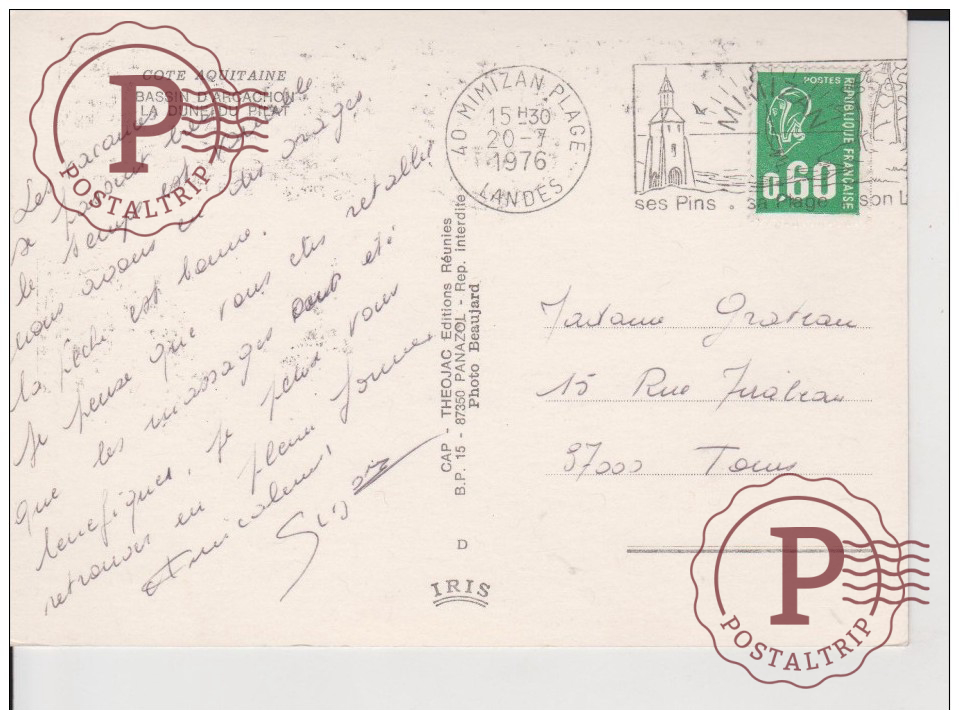 COTE AQUITAINE
BASSIN D'ARCACHON
LA DUNE DU PILAT
P
POSTALTRIP
Les vacances
se passent bien
le temps est
nous avons eu des orages
la pêche est bonne.
Je pense que vous êtes retablie
que les massages ont été
benefiques. Je pense vous
retrouver en pleine forme
Amicalement
40 MIMIZAN PLAGE
15H30
20-7
1976
LANDES
MIMIZAN
ses Pins . sa Plage son L
POSTES
REPUBLIQUE FRANCAISE
0,60
CAP - THEOJAC Editions Réunies
B.P. 15 - 87350 PANAZOL - Rep. interdite
Photo Beaujard
D
IRIS
Madame
15 Rue
37000 Tours
P
POSTALTRIP